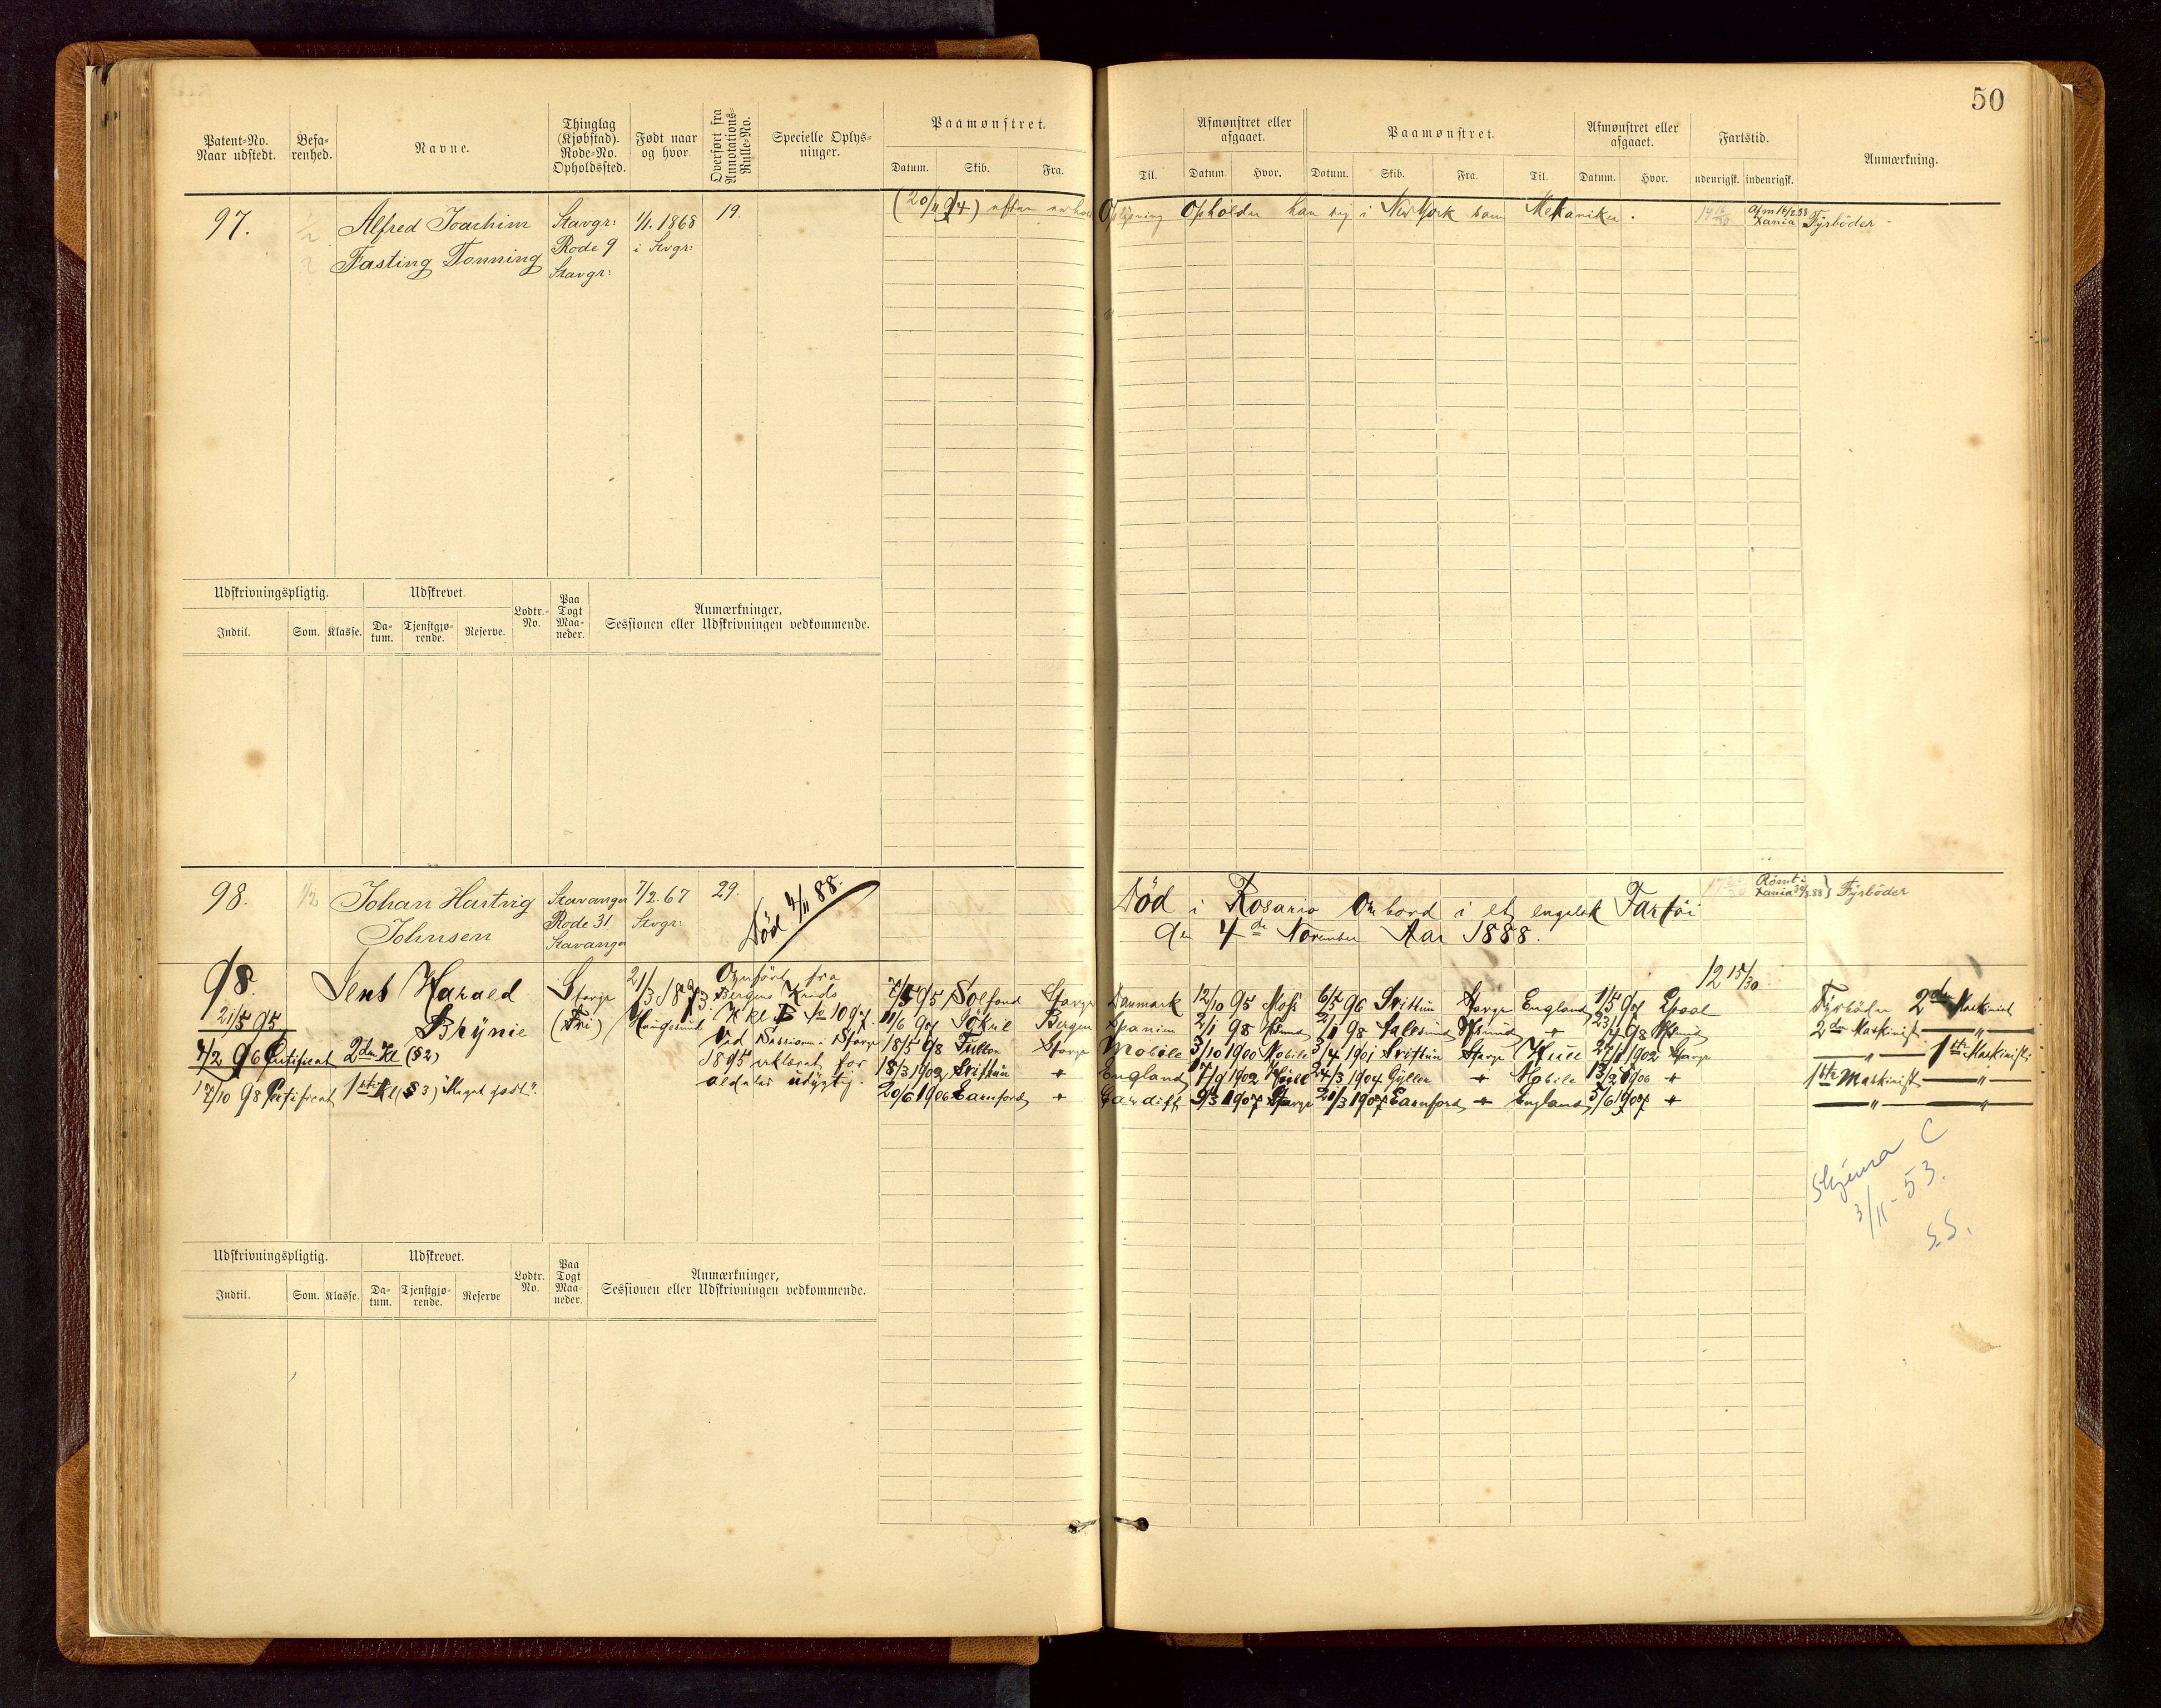 50
Patent-No. Naar udstedt.
Befarenhed.
Navne.
Thinglag (Kjøbstad). Rode-No. Opholdssted.
Født naar og hvor
Overført fra Annotations-Rulle-No.
Specielle Oplysninger.
Paamønstret.
Datum. Skib. Fra.
Til.
Afmønstret eller afgaaet.
Datum. Hvor.
Paamønstret.
Datum. Skib. Fra. Til.
Afmønstret eller afgaaet.
Datum. Hvor.
Fartstid.
udenrigsk. indenrigsk.
Anmærkning.
97.
Alfred Joachim
Fasting Tonning
Stavgr:
Rode 9
Stavgr:
1/1. 1868
i Svgr:
19.
(20/11 94) efter
Oplysning Opholder han sig i New York som Mekaniker.
Afm 14/2 88
Xania
Fyrböder
Udskrivningspligtig.
Indtil. Som. Klasse.
Udskrevet
Datum. Tjenstgjørende. Reserve.
Lodtr.-No.
Paa Togt Maaneder.
Anmærkninger,
Sessionen eller Udskrivningen vedkommende.
98.
1/2
Johan Hartvig
Johnsen
Stavanger
Rode 31
Stavanger
7/2. 67
Svgr:
29.
Död 4/11 88.
Död i Rosario Ombord i et engelsk Fartöi
den 4de November Aar 1888.
Römt i
Xania
Fyrböder
98.
21/5 95
Jens Harald
Brynie
Stavgr
(Fri)
21/3 1873
Haugesund
Overfört fra
Bergens Kreds
Ved Session i Stavgr
1895 erklæret for
aldeles udygtig.
12 15/30
4/2 96 Certificat 2den Kl (§2)
17/10 98 Certificat 1ste Kl (§3) "Meget godt".
7/5 95 Solfond Stavgr Danmark 12/10 95 Mosj 6/5 96 Svithun Stavgr England 1/5 97
Fyrböder 2den Maskinist
11/6 97 Jökul Bergen Spanien 2/1 98
2den Maskinist
18/5 98 Fulton Stavgr Mobile 3/10 1900 Mobile 3/4 1901 Svithun Stavgr Hull 1902 Stavgr
1ste Maskinist
18/3 1902 Svithun " England 17/9 1902 24/3 1904 Gyller " Mobile 13/2 1906 "
1ste Maskinist "
20/6 1906 Earnford " Cardiff 9/3 1907 Stavgr 21/3 1907 Earnford " England 5/6 1907 "
" "
3/11-53.
S.S.
Udskrivningspligtig.
Indtil. Som. Klasse.
Udskrevet.
Datum. Tjenstgjørende. Reserve
Lodtr. No.
Paa Togt Maaneder.
Anmærkninger,
Sessionen eller Udskrivningen vedkommende.